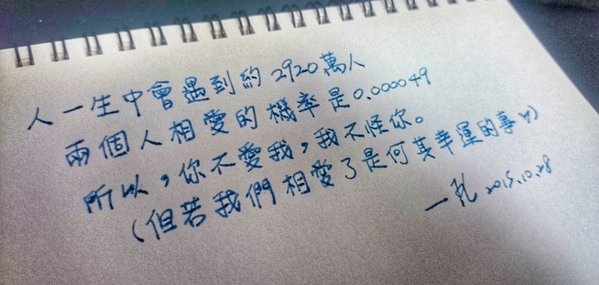 人一生中會遇到約2920萬人
兩個人相愛的機率是0.000049
所以，你不愛我，我不怪你。
（但若我們相愛了是何其幸運的事）
一礼 2015.10.28